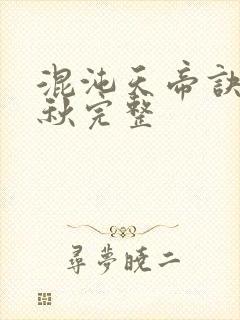 混沌天帝訣
秋完整
尋夢曉二